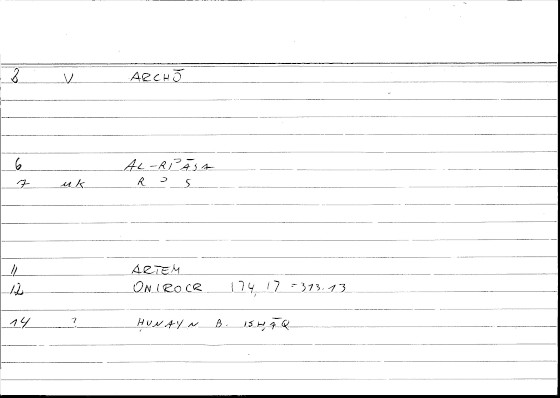 8 V ARCHŌ
6 AL-RIʾĀSA
7 MK R ʾ S
11 ARTEM
12 ONIROCR 174,17 = 313.13
14 ? ḤUNAYN B. ISḤĀQ